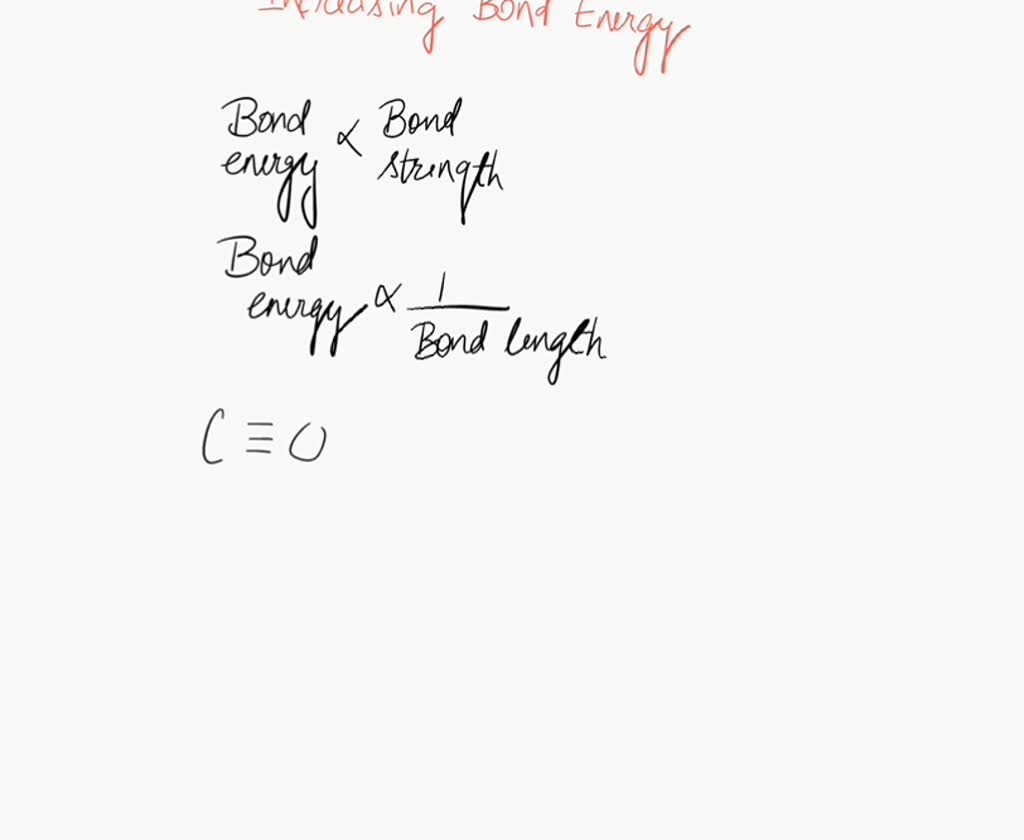 Increasing Bond Energy
Bond energy ∝ Bond strength
Bond energy ∝ 1 / Bond length
C ≡ O